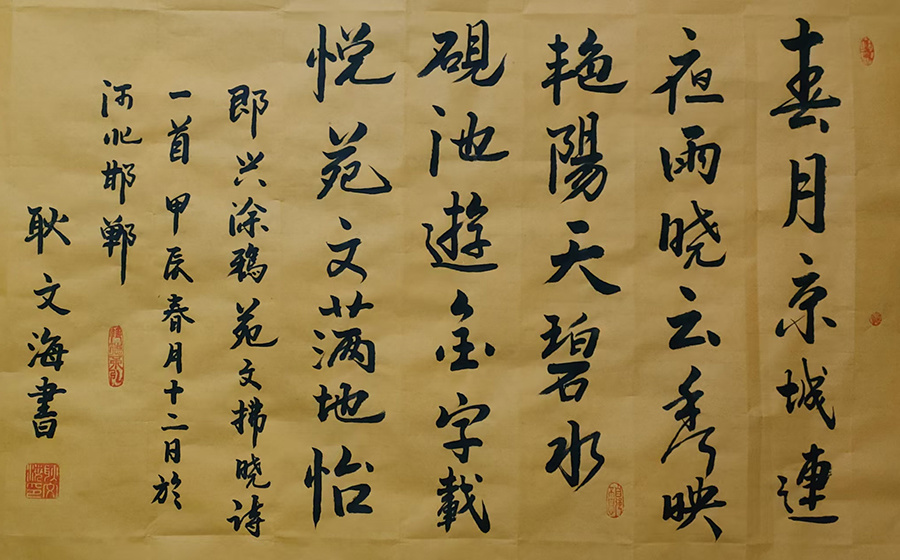 春月京城連
夜雨晓云秀映
艳陽天碧水
硯池遊金字載
悦苑文满地怡
即兴涂鸦苑文拂晓诗
一首甲辰春月十二日於
河北邯郸
耿文海書